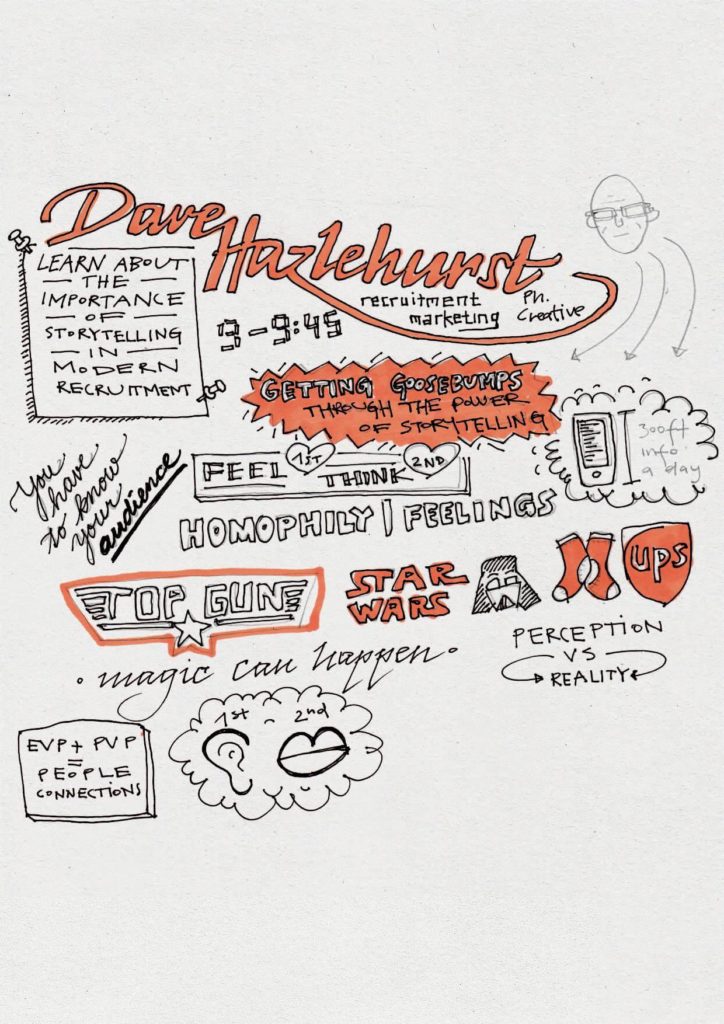 Dave
Hazlehurst
recruitment
marketing
Ph.
Creative
LEARN ABOUT
THE
IMPORTANCE
OF
STORYTELLING
IN
MODERN
RECRUITMENT
9-9:45
GETTING GOOSEBUMPS
THROUGH THE POWER
OF STORYTELLING
300ft
info
a day
You
have
to know
your
audience
FEEL 1ST THINK 2ND
HOMOPHILY | FEELINGS
TOP GUN
STAR
WARS
ups
PERCEPTION
VS
REALITY
· magic can happen ·
EVP + PVP
=
PEOPLE
CONNECTIONS
1st - 2nd